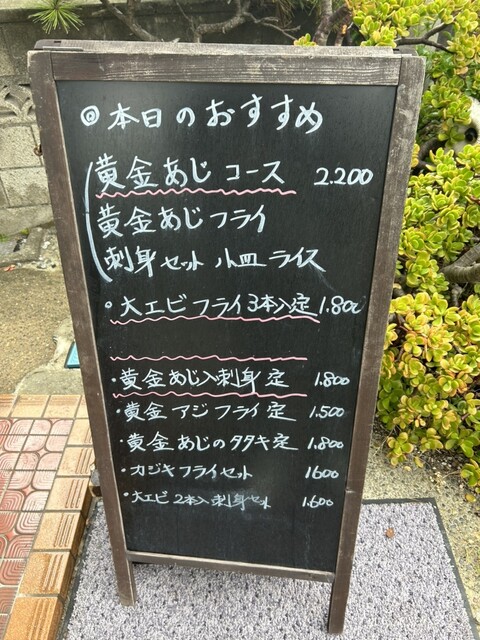 ◎本日のおすすめ
黄金あじコース 2.200
黄金あじフライ
刺身セット 小皿 ライス
・大エビフライ3本入定 1.800
・黄金あじ入刺身定 1.800
・黄金アジフライ定 1.500
・黄金あじのタタキ定 1.800
・カジキフライセット 1600
・大エビ2本入刺身セット 1.600